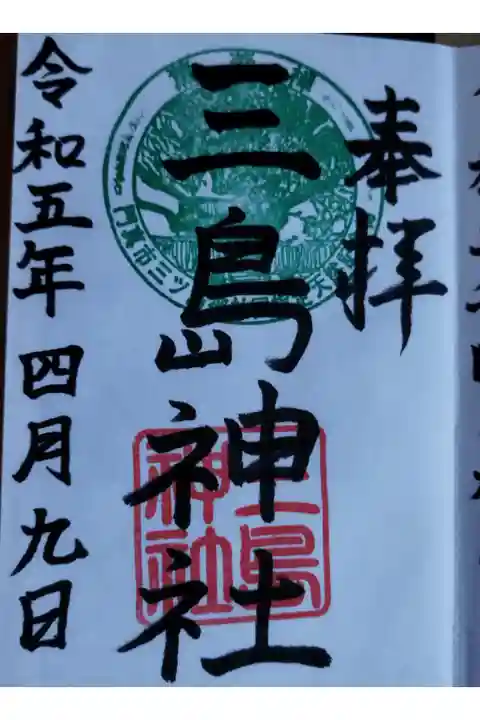 奉拝
三島神社
令和五年四月九日
三島
神社
門真市三ツ